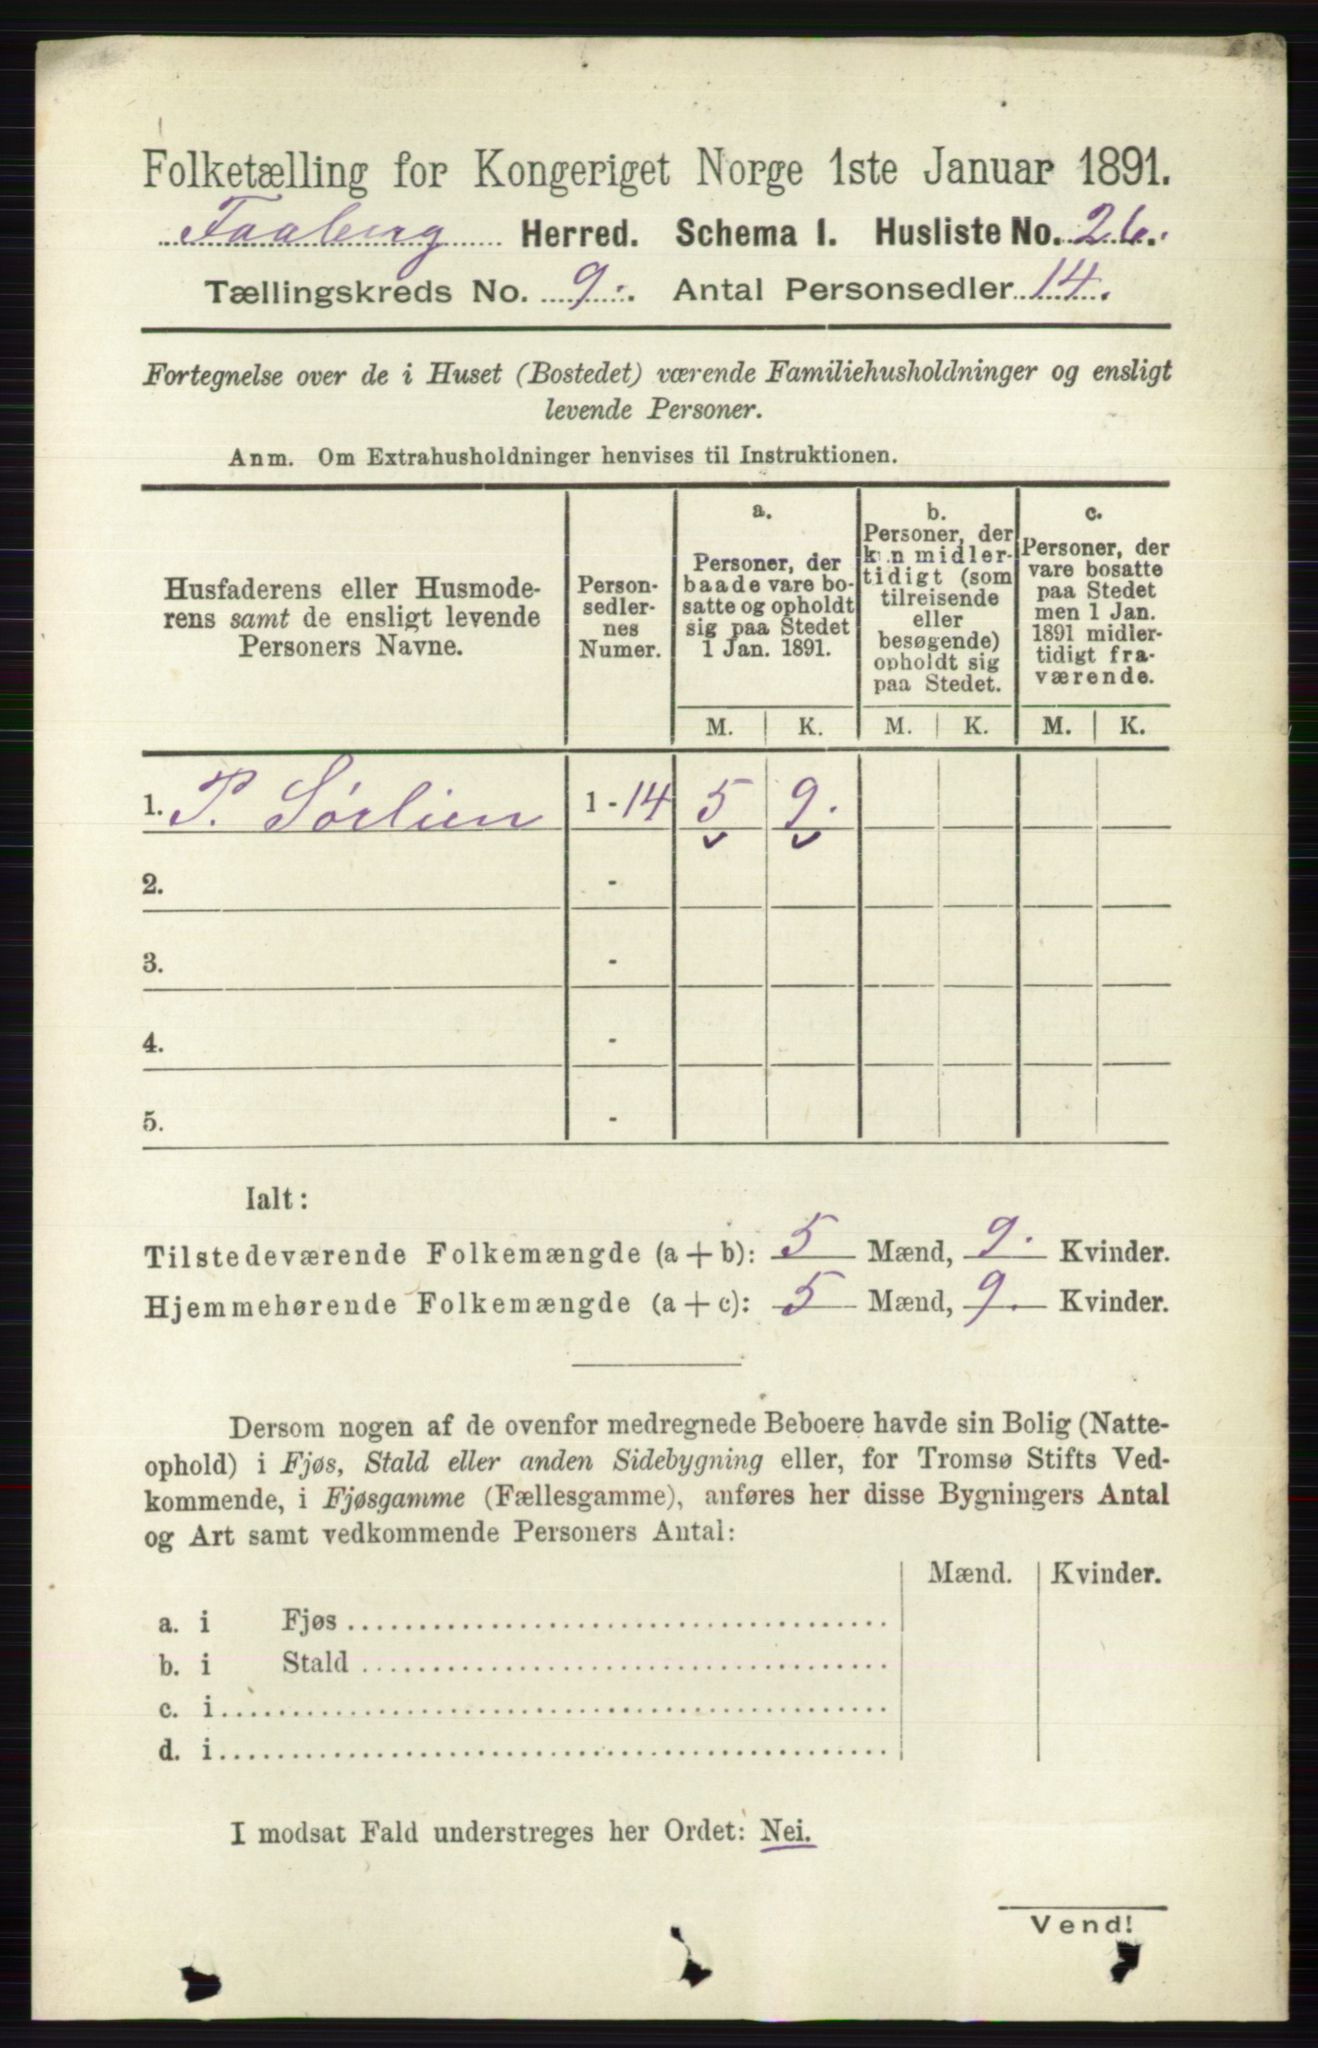 Folketælling for Kongeriget Norge 1ste Januar 1891.
Faaberg Herred. Schema I. Husliste No. 26.
Tællingskreds No. 9. Antal Personsedler 14.
Fortegnelse over de i Huset (Bostedet) værende Familiehusholdninger og ensligt
levende Personer.
Anm. Om Extrahusholdninger henvises til Instruktionen.
Husfaderens eller Husmode-
rens samt de ensligt levende
Personers Navne.
Person-
sedler-
nes
Numer.
a.
Personer, der
baade vare bo-
satte og opholdt
sig paa Stedet
1 Jan. 1891.
b.
Personer, der
kun midler-
tidigt (som
tilreisende
eller
besøgende)
opholdt sig
paa Stedet.
c.
Personer, der
vare bosatte
paa Stedet
men 1 Jan.
1891 midler-
tidigt fra-
værende.
M. K. M. K. M. K.
1. P. Sørlien 1 - 14 5 9.
2. -
3. -
4. -
5. -
Ialt:
Tilstedeværende Folkemængde (a + b): 5 Mænd, 9. Kvinder.
Hjemmehørende Folkemængde (a + c): 5 Mænd, 9. Kvinder.
Dersom nogen af de ovenfor medregnede Beboere havde sin Bolig (Natte-
ophold) i Fjøs, Stald eller anden Sidebygning eller, for Tromsø Stifts Ved-
kommende, i Fjøsgamme (Fællesgamme), anføres her disse Bygningers Antal
og Art samt vedkommende Personers Antal:
Mænd. Kvinder.
a. i Fjøs
b. i Stald
c. i
d. i
I modsat Fald understreges her Ordet: Nei.
Vend!